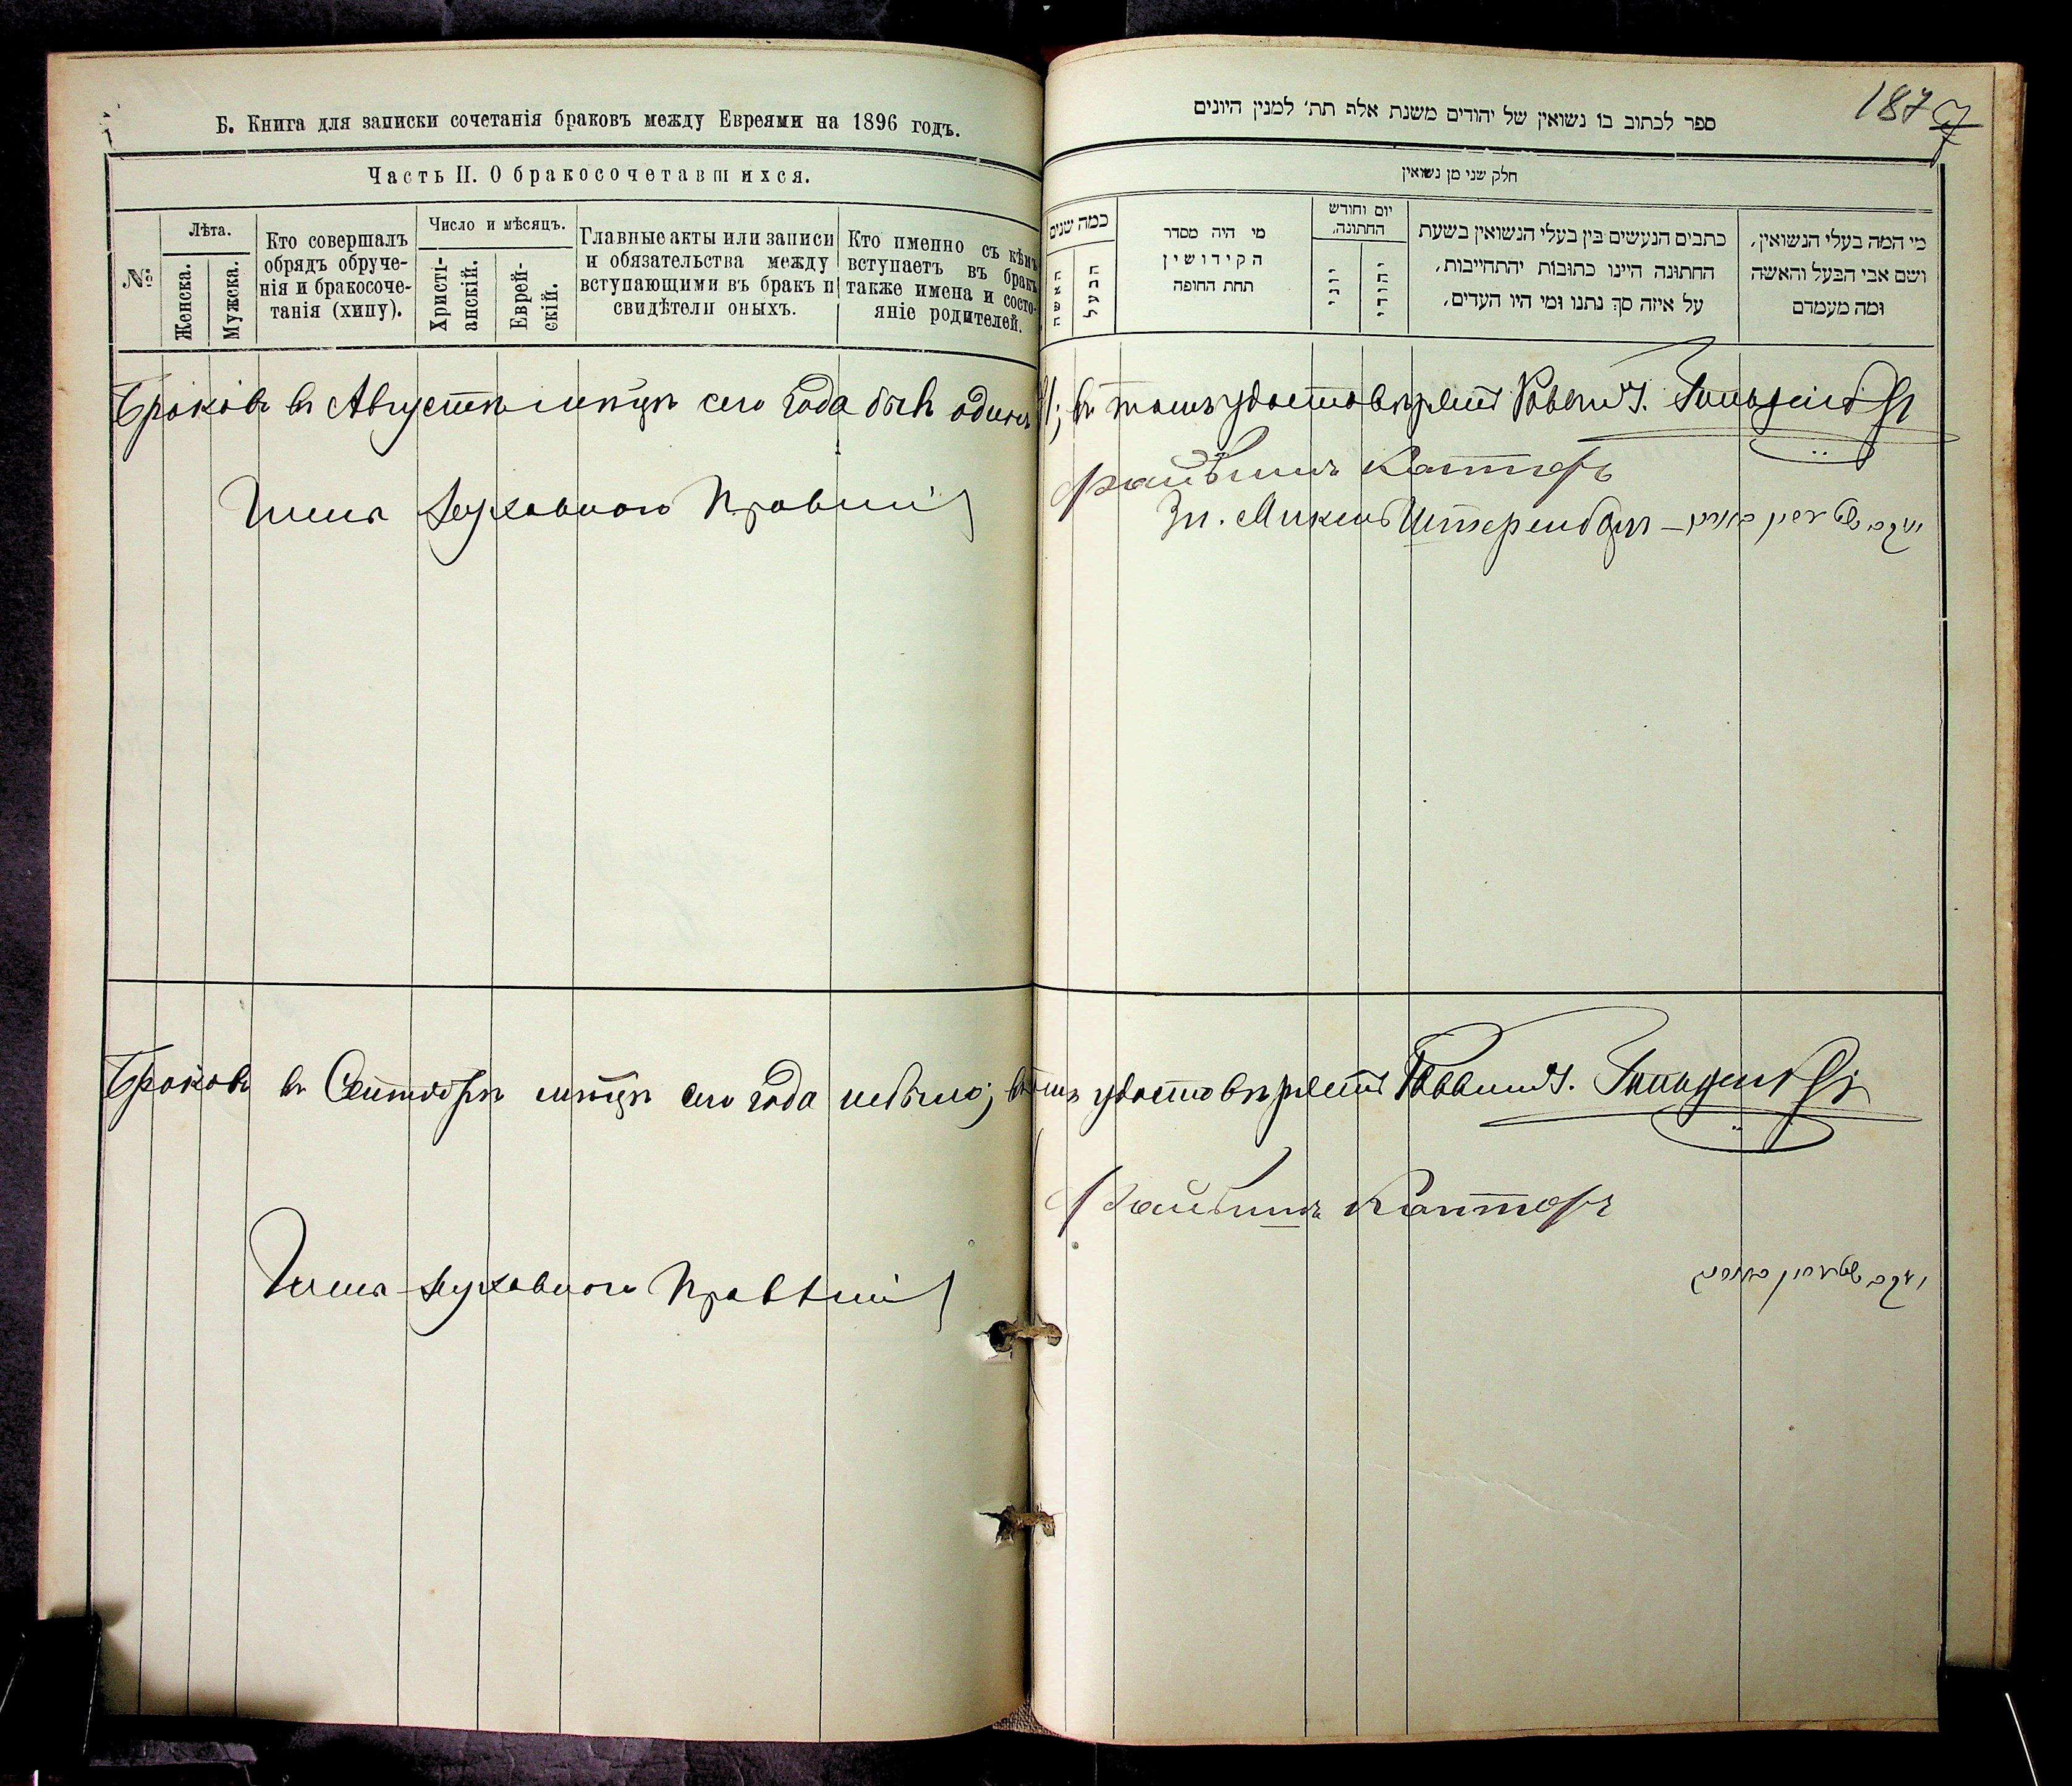 Б. Книга для записки сочетанія браковъ между Евреями на 1896 годъ.
Часть II. О бракосочетавшихся.
№
Лѣта.
Женска.
Мужска.
Кто совершалъ
обрядъ обруче-
нія и бракосоче-
танія (хипу).
Число и мѣсяцъ.
Христі-
анскій.
Еврей-
скій.
Главные акты или записи
и обязательства между
вступающими въ бракъ и
свидѣтели оныхъ.
Кто именно съ кѣмъ
вступаетъ въ бракъ
также имена и состо-
яніе родителей.
187
7
ספר לכתוב בו נשואין של יהודים משנת אלף תת׳ למנין היונים
חלק שני מן נשואין
כמה שנים
האשה
הבעל
מי היה מסדר
הקידושין
תחת החופה
יום וחודש
החתונה.
יוני
יהודי
כתבים הנעשים בין בעלי הנשואין בשעת
החתונה היינו כתובות יהתחייבות,
על איזה סך נתנו ומי היו העדים,
מי המה בעלי הנשואין,
ושם אבי הבעל והאשה
ומה מעמדם
Браковъ въ Августѣ мѣсяцѣ сего года былъ одинъ /1/; въ томъ удостовѣряетъ Раввинъ
Члены Духовнаго Правленія
Файвишъ Канторъ
Браковъ въ Сентябрѣ мѣсяцѣ сего года небыло; въ томъ удостовѣряетъ Раввинъ
Члены Духовнаго Правленія
Файвишъ Канторъ